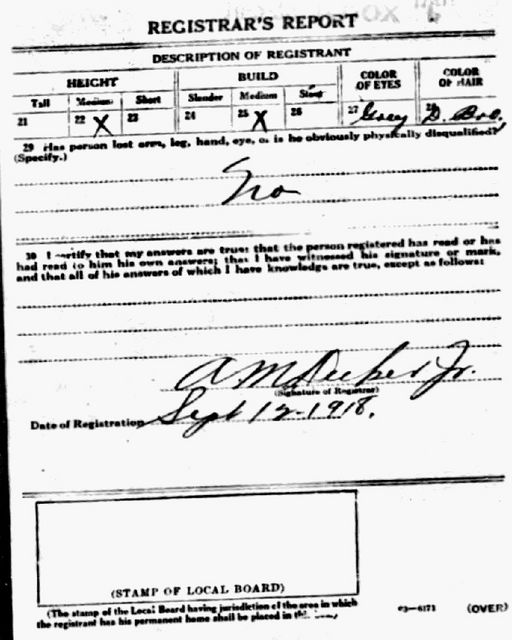 REGISTRAR'S REPORT
DESCRIPTION OF REGISTRANT
HEIGHT BUILD COLOR OF EYES COLOR OF HAIR
Tall Medium Short Slender Medium Stout
21 22 X 23 24 25 X 26 27 Grey 28 D. Bro.
29 Has person lost arm, leg, hand, eye, or is he obviously physically disqualified?
(Specify.)
No
30 I certify that my answers are true; that the person registered has read or has
had read to him his own answers; that I have witnessed his signature or mark,
and that all of his answers of which I have knowledge are true, except as follows:
A M Jr.
(Signature of Registrar)
Date of Registration Sept 12-1918.
(STAMP OF LOCAL BOARD)
(The stamp of the Local Board having jurisdiction of the area in which
the registrant has his permanent home shall be placed in this box.)
03—6171 (OVER)